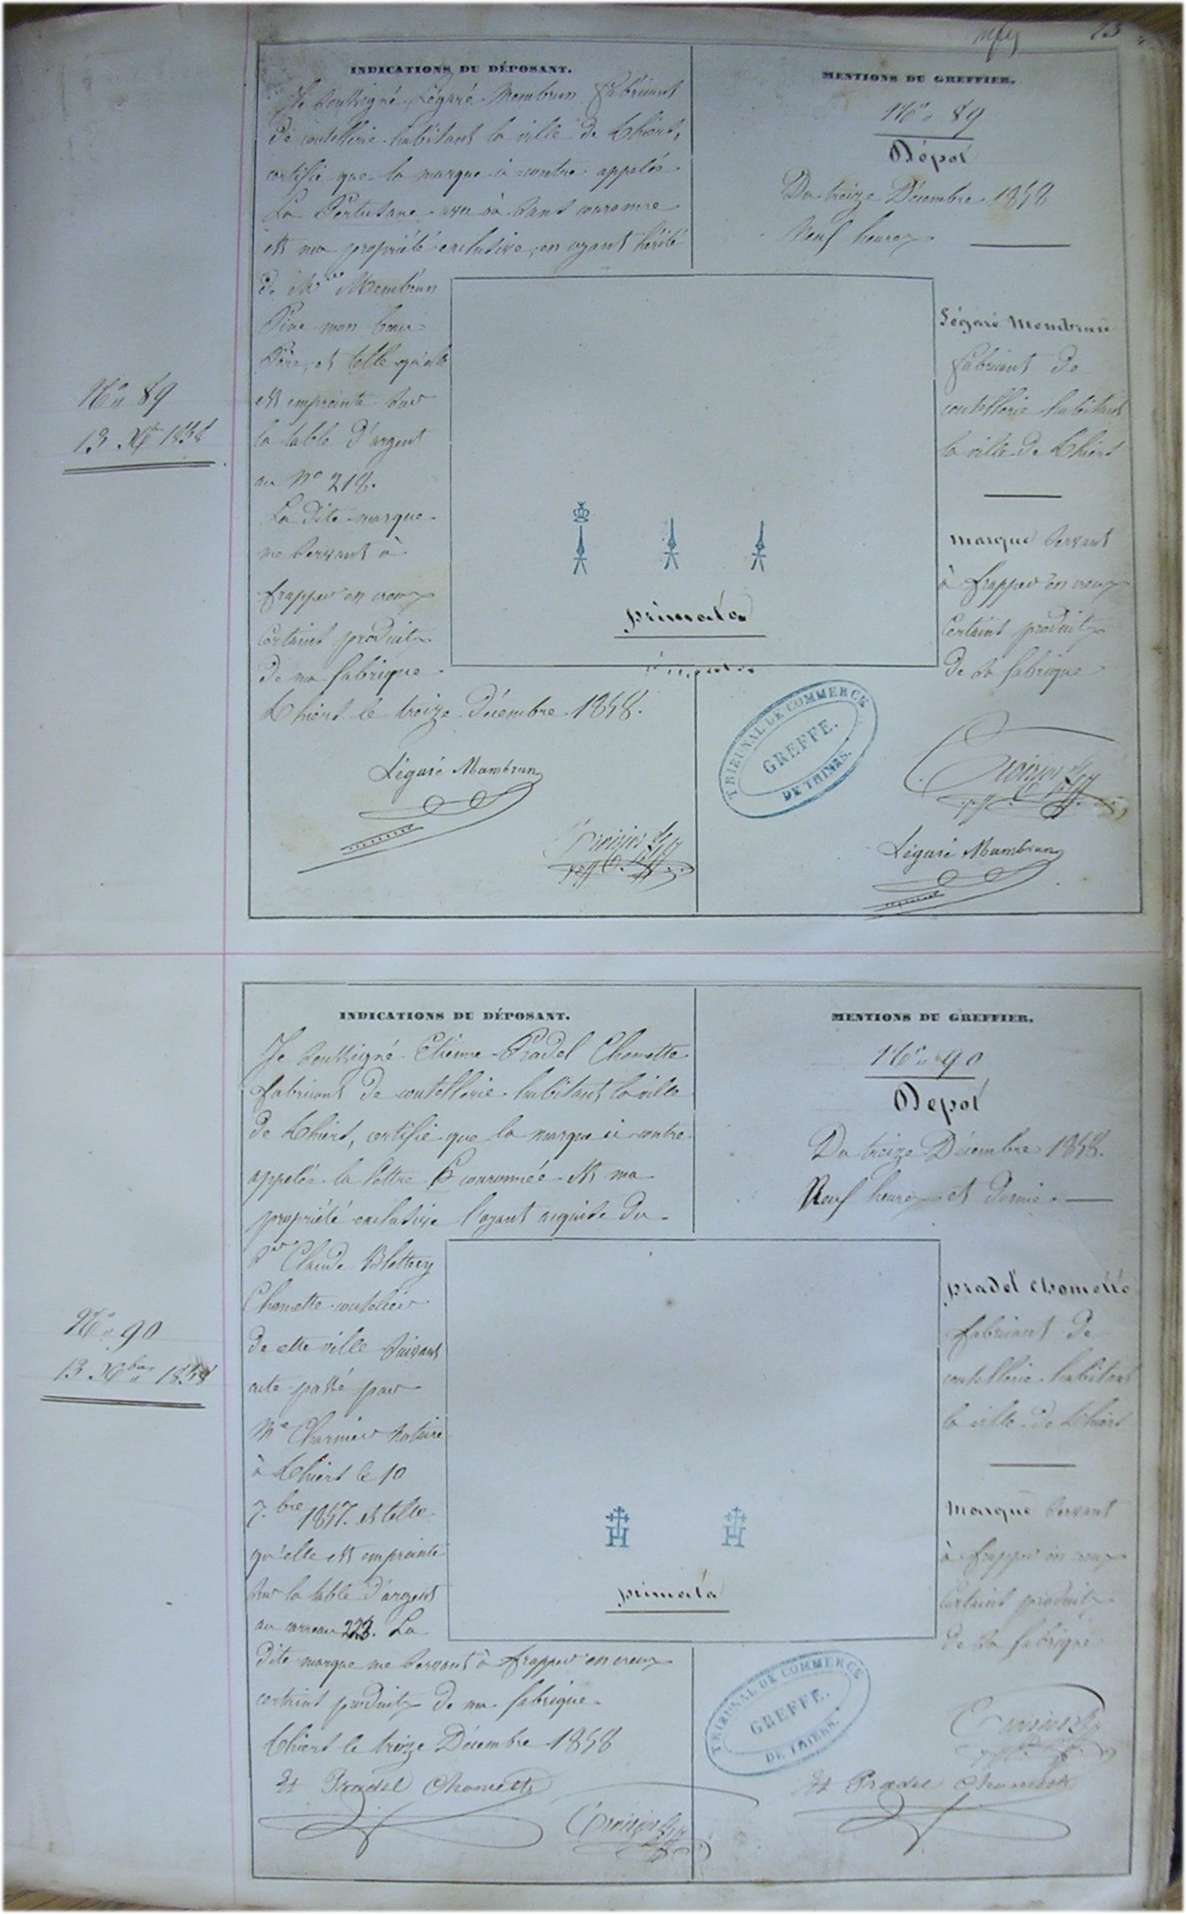 13
INDICATIONS DU DÉPOSANT.
Je soussigné Légaré Mambrun fabricant
de coutellerie habitant la ville de Thiers,
certifie que la marque ci-contre appelée
La Pertuisane avec ou sans couronne
est ma propriété exclusive, en ayant hérité
de Mr Mambrun
Père mon beau-
Père, et telle qu'elle
est empreinte sur
la table d'argent
au No 218.
La dite marque
me servant à
frapper en creux
certains produits
de ma fabrique
Thiers le treize décembre 1858.
Légaré Mambrun
MENTIONS DU GREFFIER.
No 89
Dépot
Du treize Décembre 1858
Neuf heures
Légaré Mambrun
fabricant de
coutellerie habitant
la ville de Thiers
marque servant
à frapper en creux
certains produits
de sa fabrique
primata
TRIBUNAL DE COMMERCE
GREFFE.
DE THIERS.
Légaré Mambrun
No 89
13 Xbre 1858
INDICATIONS DU DÉPOSANT.
Je soussigné Etienne Pradel Chomette
fabricant de coutellerie habitant la ville
de Thiers, certifie que la marque ci-contre
appelée la lettre H couronnée est ma
propriété exclusive l'ayant acquise du
Sr Claude Blettery
Chomette coutelier
de cette ville suivant
acte passé par
Me Charnier notaire
à Thiers le 10
7.bre 1857. et telle
qu'elle est empreinte
sur la table d'argent
au carreau 223. La
dite marque me servant à frapper en creux
certains produits de ma fabrique.
Thiers le treize Décembre 1858
Et Pradel Chomette
MENTIONS DU GREFFIER.
No 90
Depot
Du treize Décembre 1858.
Neuf heures et demie
pradel chomette
fabricant de
coutellerie habitant
la ville de Thiers
Marque servant
à frapper en creux
certains produits
de sa fabrique
H H
primata
TRIBUNAL DE COMMERCE
GREFFE.
DE THIERS.
Et Pradel Chomette
No 90
13 Xbre 1858